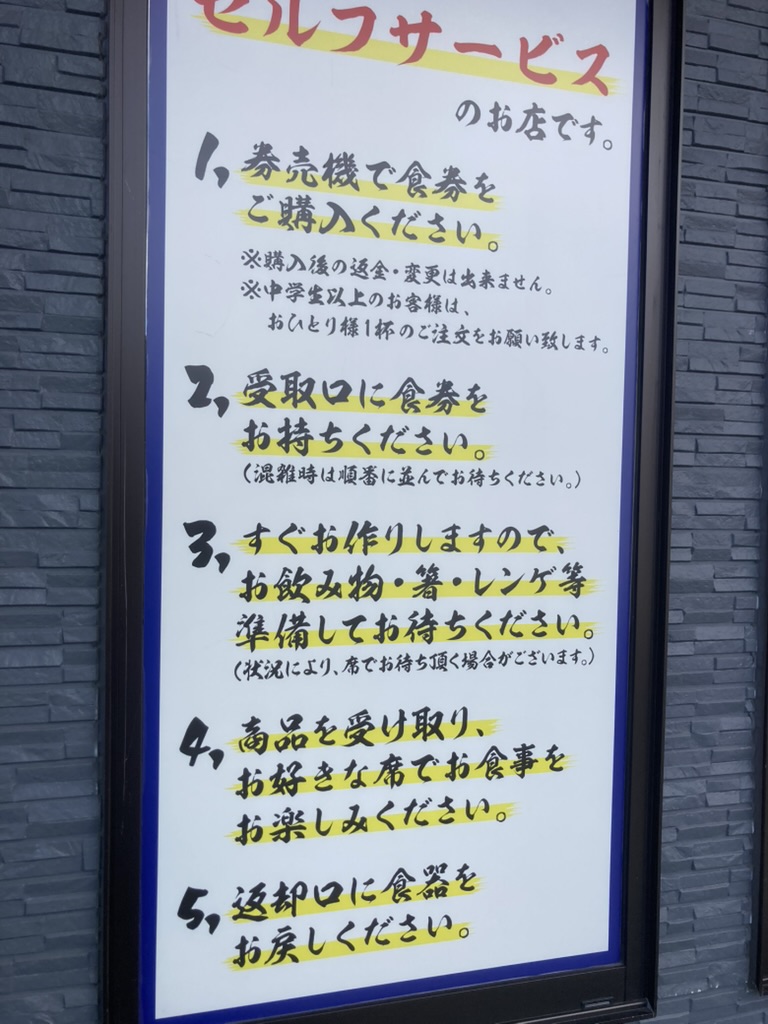 セルフサービス
のお店です。
1, 券売機で食券を
ご購入ください。
※購入後の返金・変更は出来ません。
※中学生以上のお客様は、
おひとり様1杯のご注文をお願い致します。
2, 受取口に食券を
お持ちください。
(混雑時は順番に並んでお待ちください。)
3, すぐお作りしますので、
お飲み物・箸・レンゲ等
準備してお待ちください。
(状況により、席でお待ち頂く場合がございます。)
4, 商品を受け取り、
お好きな席でお食事を
お楽しみください。
5, 返却口に食器を
お戻しください。